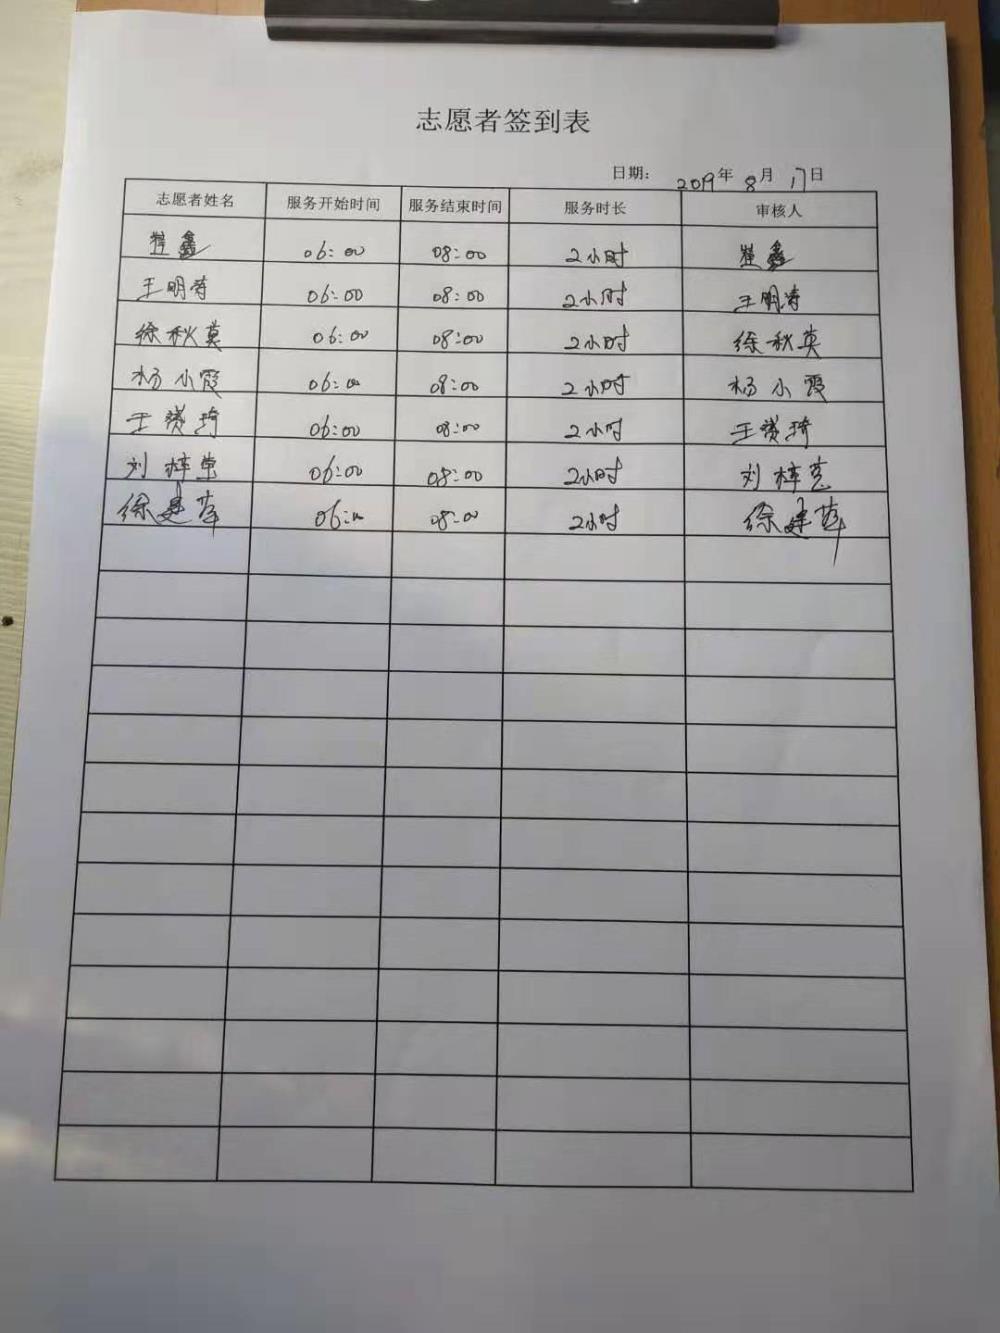 志愿者签到表
日期: 2019年 8月 17日
志愿者姓名 服务开始时间 服务结束时间 服务时长 审核人
崔鑫 06:00 08:00 2小时 崔鑫
王明涛 06:00 08:00 2小时 王明涛
徐秋英 06:00 08:00 2小时 徐秋英
杨小霞 06:00 08:00 2小时 杨小霞
王赟琦 06:00 08:00 2小时 王赟琦
刘梓 06:00 08:00 2小时 刘梓
徐建萍 06:00 08:00 2小时 徐建萍